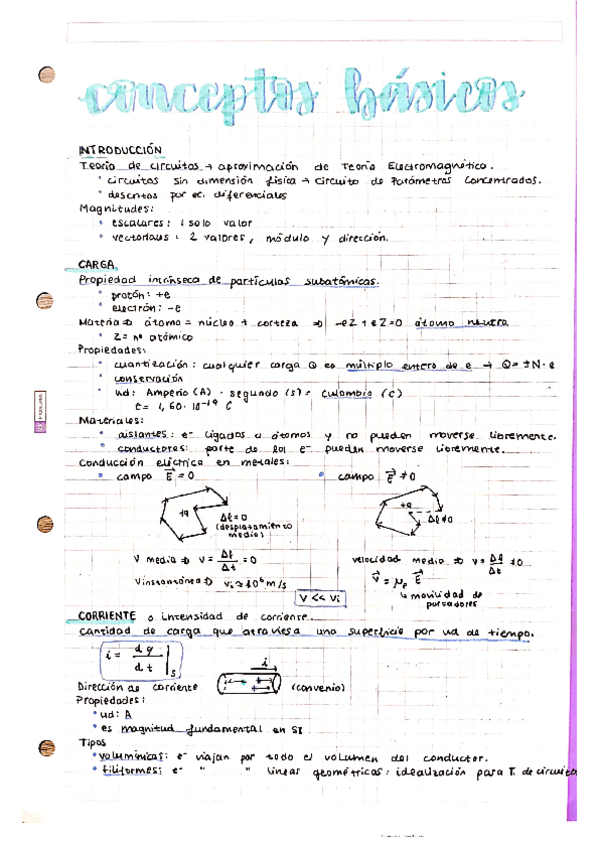 conceptos básicos
INTRODUCCIÓN
Teoría de circuitos → aproximación de Teoría Electromagnética.
• circuitos sin dimensión física → circuito de Parámetros Concentrados.
• descritos por ec. diferenciales
Magnitudes:
• escalares: 1 solo valor
• vectoriales: 2 valores, módulo y dirección.
CARGA
Propiedad intrínseca de partículas subatómicas.
• protón: +e
• electrón: -e
Materia ⇒ átomo = núcleo + corteza ⇒ -eZ + eZ = 0 átomo neutro
• Z = nº atómico
Propiedades:
• cuantización: cualquier carga Q es múltiplo entero de e → Q = ±N · e
• conservación
• ud: Amperio (A) · segundo (s) = Culombio (C)
e = 1,60 · 10⁻¹⁹ C
Materiales:
• aislantes: e⁻ ligados a átomos y no pueden moverse libremente.
• conductores: parte de los e⁻ pueden moverse libremente.
Conducción eléctrica en metales:
• campo E⃗ = 0
• campo E⃗ ≠ 0
+q
Δl = 0
(desplazamiento medio)
+q
Δl ≠ 0
V media ⇒ v = Δl/Δt = 0
velocidad media ⇒ v = Δl/Δt ≠ 0
Vinstantánea ⇒ vi ≈ 10⁶ m/s
V⃗ = μp E⃗
↳ movilidad de portadores
V << Vi
CORRIENTE o intensidad de corriente.
Cantidad de carga que atraviesa una superficie por ud de tiempo.
i = dq/dt |s
i
Dirección de corriente
(convenio)
Propiedades:
• ud: A
• es magnitud fundamental en SI
Tipos
• volumínicas: e⁻ viajan por todo el volumen del conductor.
• filiformes: e⁻ " " líneas geométricas: idealización para T. de circuitos